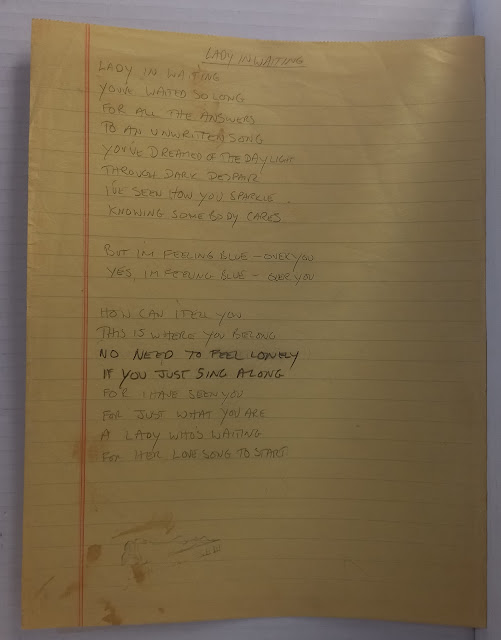 LADY IN WAITING
LADY IN WAITING
YOU'VE WAITED SO LONG
FOR ALL THE ANSWERS
TO AN UNWRITTEN SONG
YOU'VE DREAMED OF THE DAYLIGHT
THROUGH DARK DESPAIR
I'VE SEEN HOW YOU SPARKLE
KNOWING SOMEBODY CARES
BUT I'M FEELING BLUE - OVER YOU
YES, I'M FEELING BLUE - OVER YOU
HOW CAN I TELL YOU
THIS IS WHERE YOU BELONG
NO NEED TO FEEL LONELY
IF YOU JUST SING ALONG
FOR I HAVE SEEN YOU
FOR JUST WHAT YOU ARE
A LADY WHO'S WAITING
FOR HER LOVE SONG TO START